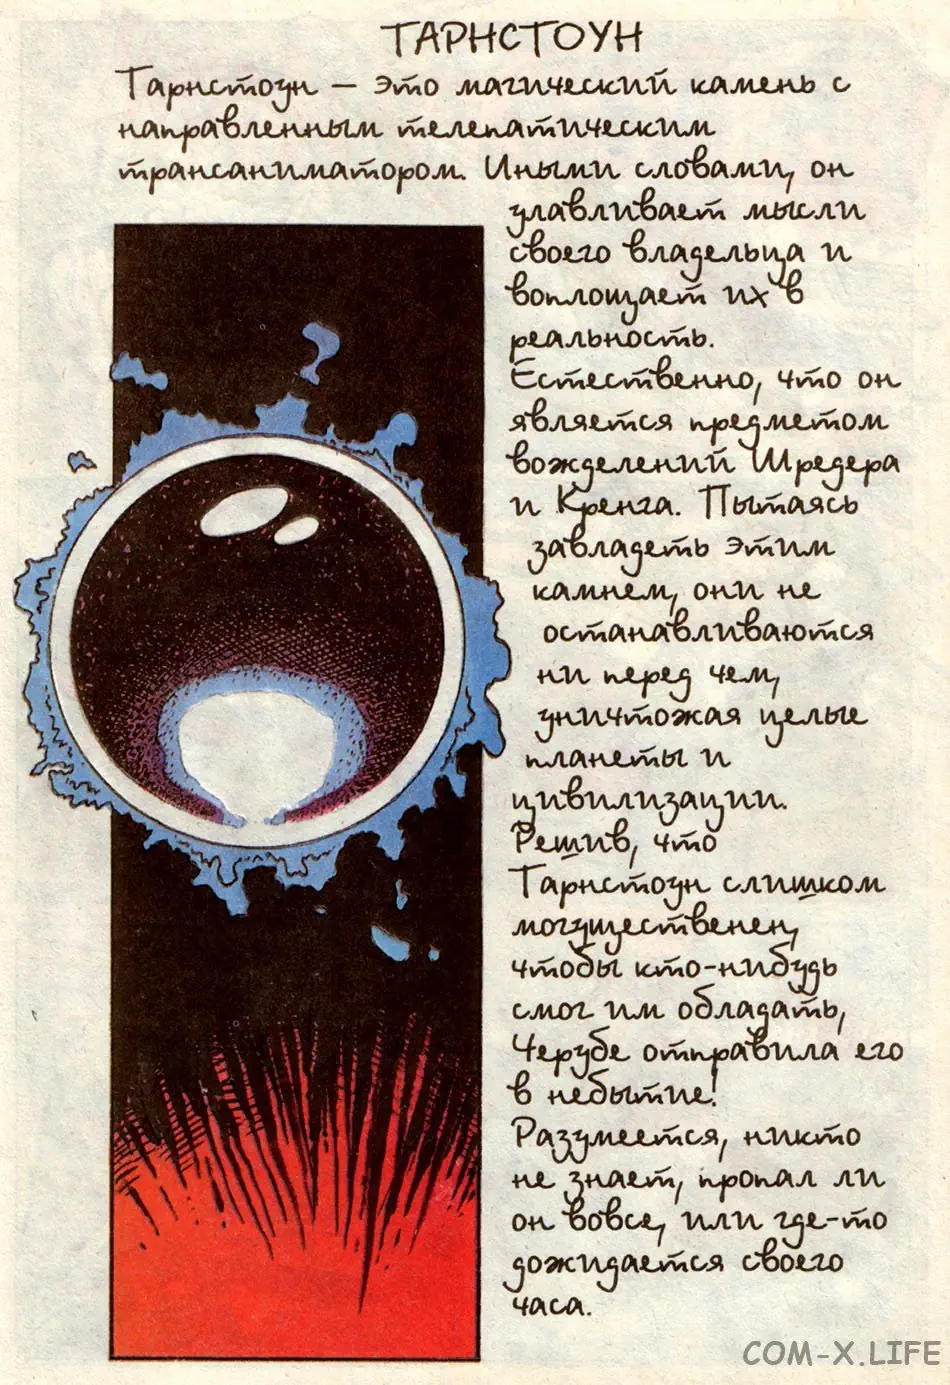 ТАРНСТОУН
Тарнстоун — это магический камень с
направленным телепатическим
трансаниматором. Иными словами, он
улавливает мысли
своего владельца и
воплощает их в
реальность.
Естественно, что он
является предметом
вожделений Шредера
и Кренга. Пытаясь
завладеть этим
камнем, они не
останавливаются
ни перед чем,
уничтожая целые
планеты и
цивилизации.
Решив, что
Тарнстоун слишком
могущественен,
чтобы кто-нибудь
смог им обладать,
Черубе отправила его
в небытие!
Разумеется, никто
не знает, пропал ли
он вовсе, или где-то
дожидается своего
часа.
COM-X.LIFE